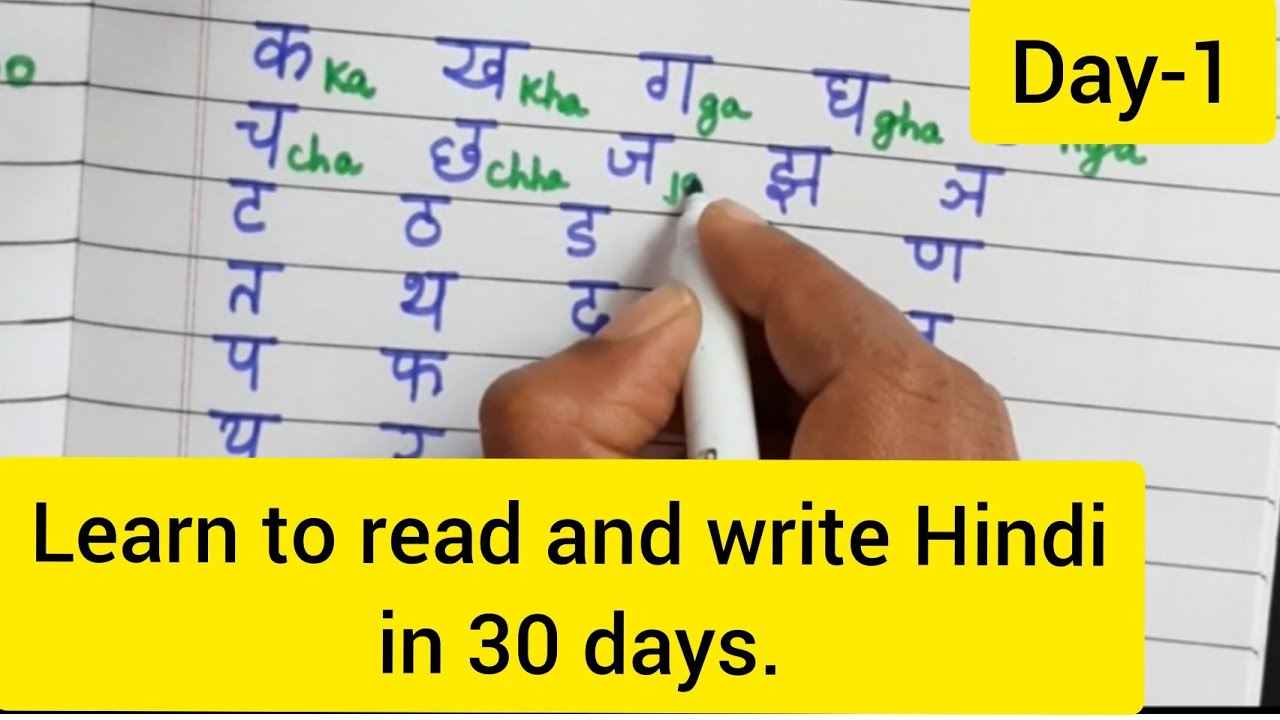 Day-1
क ka ख kha ग ga घ gha nga
च cha छ chha ज ja झ ञ
ट ठ ड ण
त थ द
प फ
य र
Learn to read and write Hindi
in 30 days.